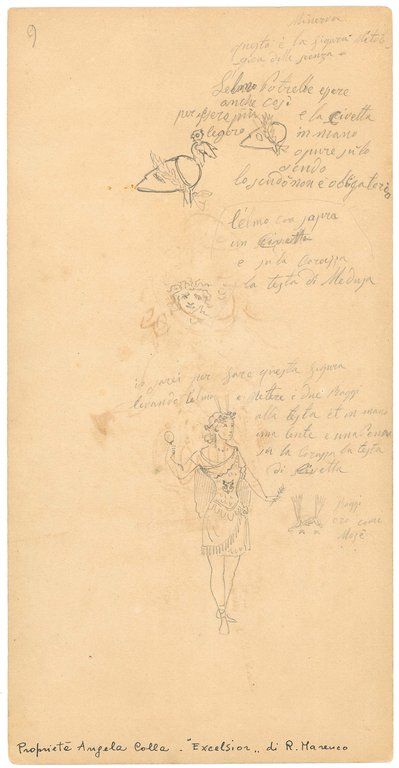 9
Minerva
questa è la figura Mitolo-
gica della scienza =
l'elmo Potrebbe essere
anche così
per essere più
legero
e la Civetta
in mano
opure sulo
scudo
lo scudo non è obligatorio
l'elmo con sopra
un Civetta
e su la Corazza
la testa di Medusa
io sarei per fare questa figura
levando l'elmo e Mettere i due Raggi
alla testa et in mano
una lente e una Penna
su la Corazza la testa
di Civetta
Raggi
oro come
Mosè
Proprietà Angela Colla . "Excelsior„ di R. Marenco